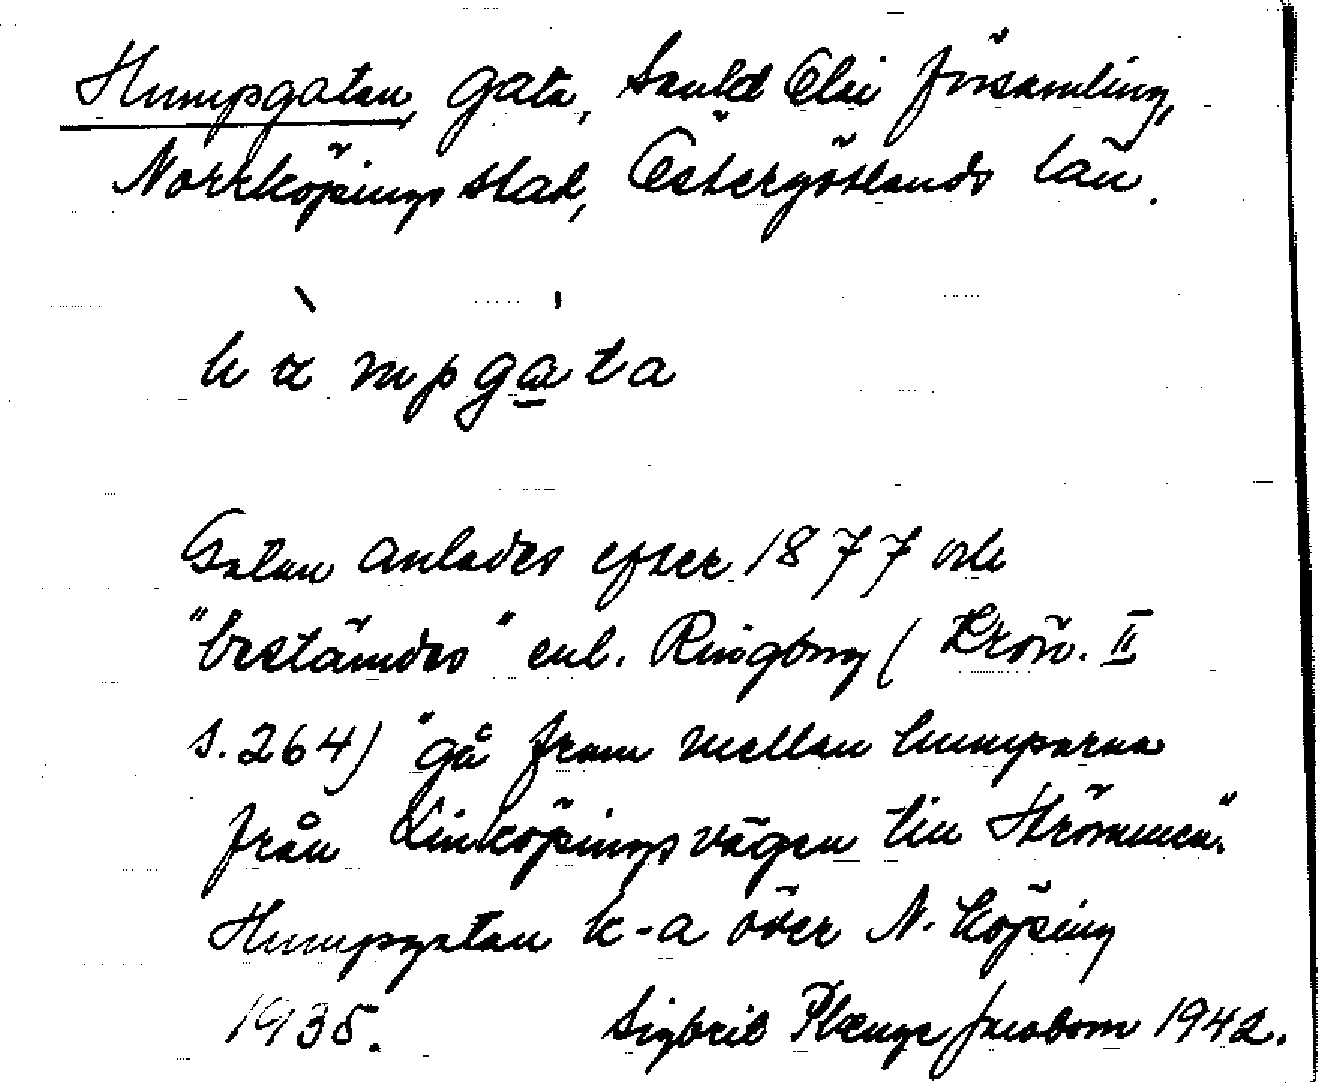 Humpgatan, gata, Sankt Olai församling,
Norrköpings stad, Östergötlands län.
hɯ̀mpga̲ta
Gatan anlades efter 1877 och
"bestämdes" enl. Ringborg (Krön. II
s. 264) "gå fram mellan humparna
från Linköpingsvägen till Strömmen".
Humpgatan k-a över N. köping
1935. Sigbrit Plænge Jacobson 1942.